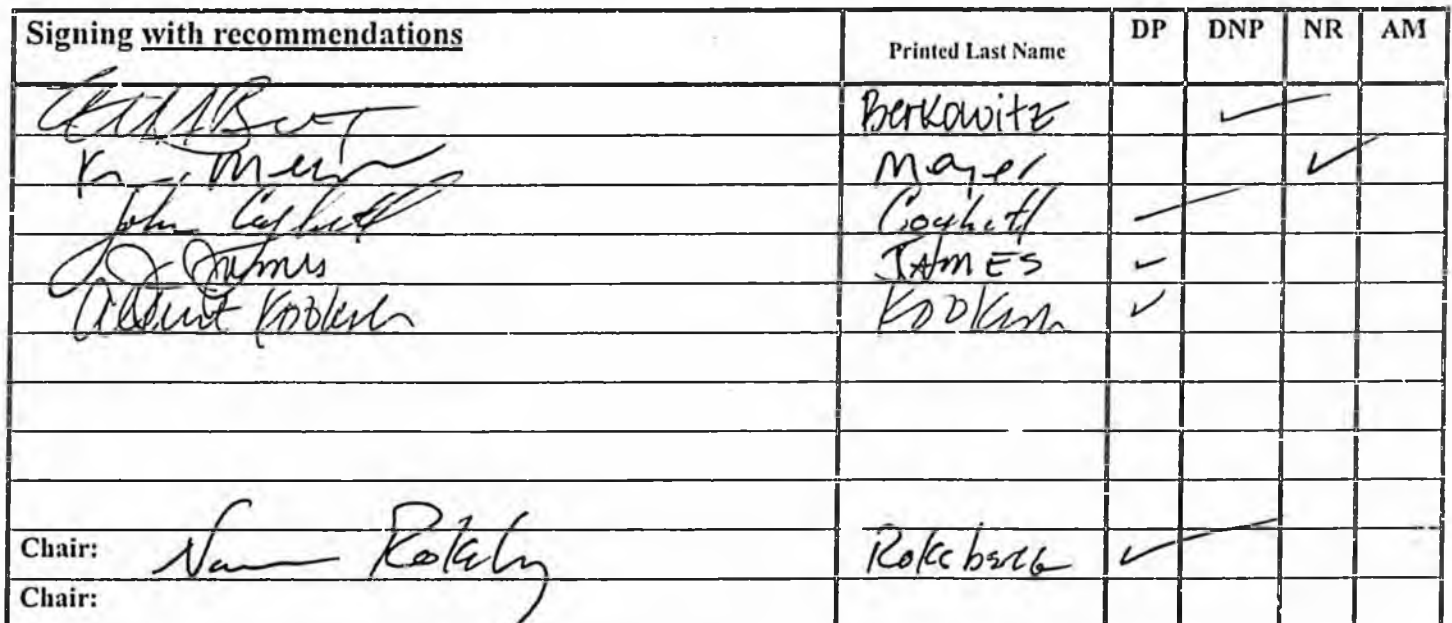 Signing with recommendations Printed Last Name DP DNP NR AM
Berkowitz ✓
Meyer ✓
John Coghill Coghill ✓
James JAMES ✓
Albert Kookesh Kookesh ✓
Chair: Norman Rokeberg Rokeberg ✓
Chair: